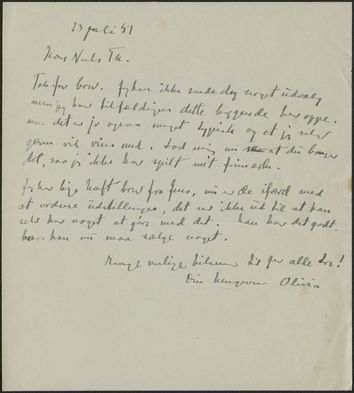 13 juli 51
Kære Niels Th.
Tak for brev. Jeg kan ikke sende dig noget udvalg
men jeg har tilfældigvis dette liggende her oppe.
men det er jo ogsaa meget typisk og et jeg selv
gerne vil vises med. Lad mig nu se at du bruger
det, saa jeg ikke har spildt mit frimærke.
Jeg har lige haft brev fra Jens, nu er de ifærd med
at ordne udstillingen, det ser ikke ud til at han
selv har noget at gøre med det. Han har det godt.
bare han nu maa sælge noget.
Mange venlige hilsner til jer alle tre!
Din hengivne Olivia